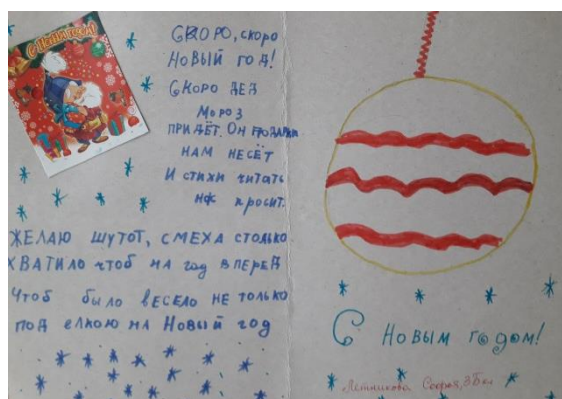 С Новым годом!
СКОРО, скоро
НОВЫЙ ГОД!
СКОРО ДЕД
МОРОЗ
ПРИДЁТ. ОН ПОДАРКИ
НАМ НЕСЁТ
И СТИХИ читать
просит.
ЖЕЛАЮ ШУТОТ, СМЕХА СТОЛЬКО
ХВАТИЛО чтоб НА год ВПЕРЕД
Чтоб было ВЕСЕЛО НЕ ТОЛЬКО
ПОД ЕЛКОЮ НА Новый год
С Новым годом!
Летникова Софья, 3Б кл